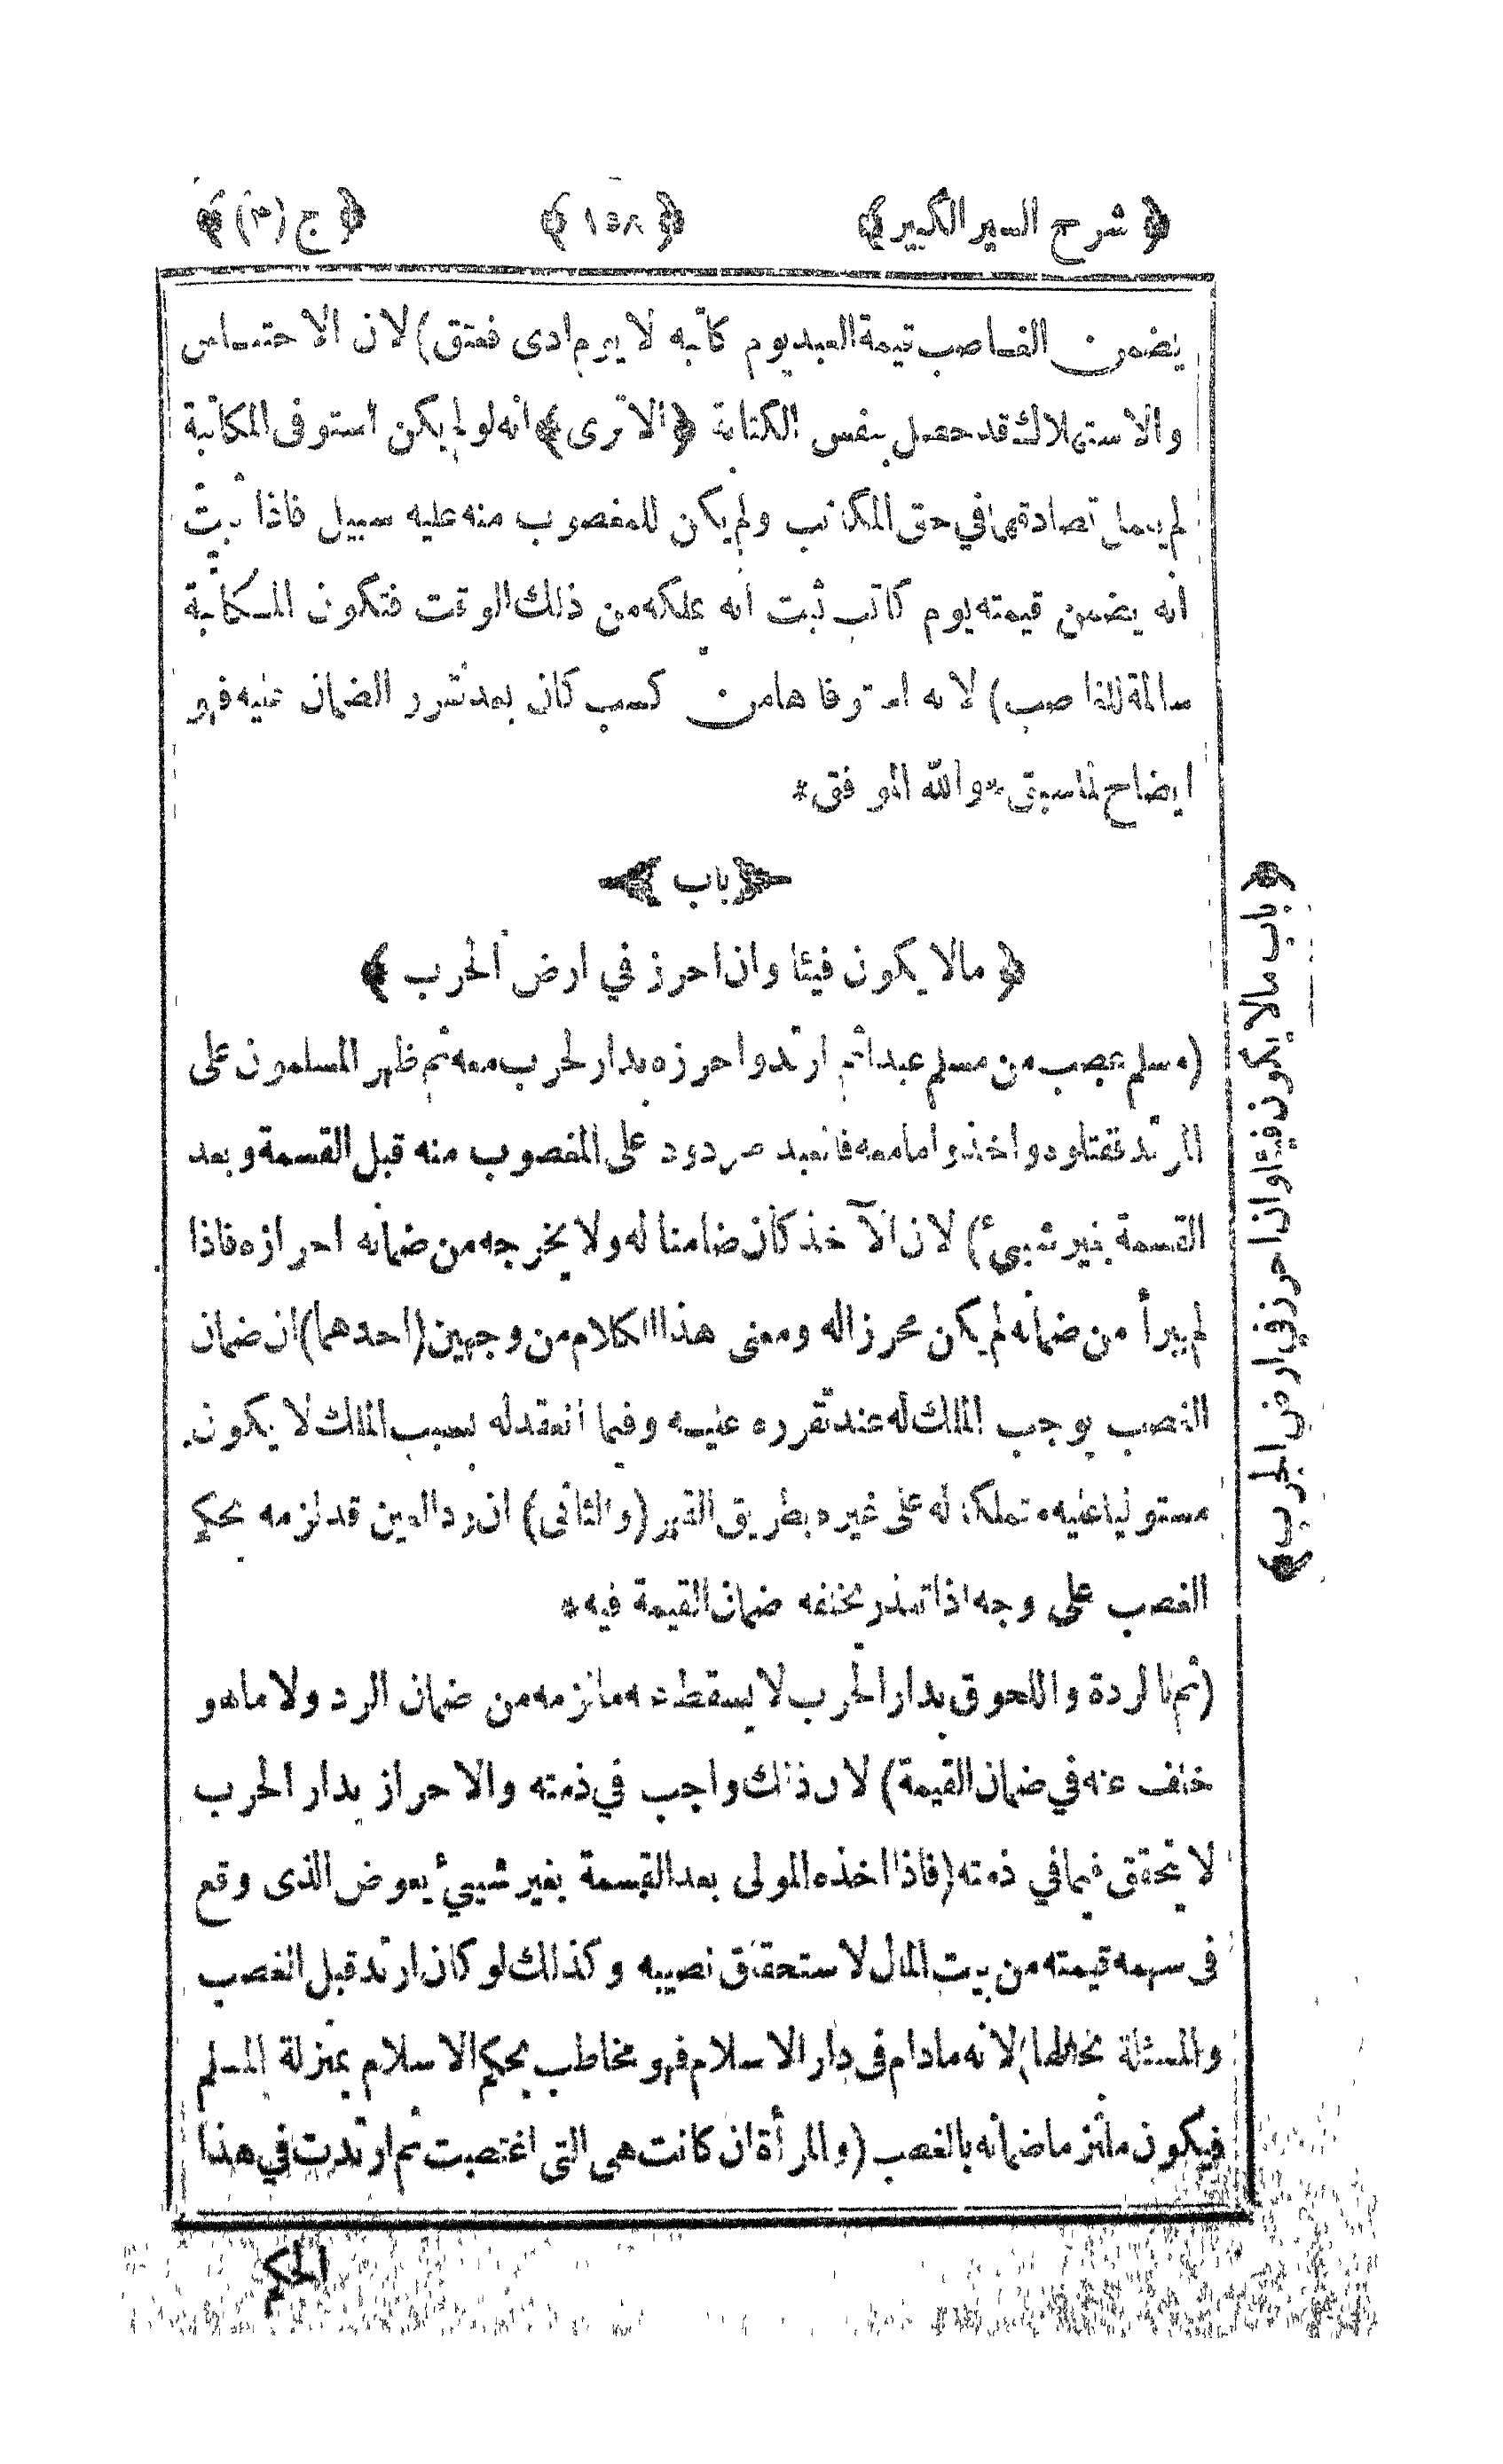 ﴿ شرح السير الكبير ﴾ ﴿ ١٥٨ ﴾ ﴿ ج (٣) ﴾
يضمن الغاصب قيمة العبد يوم كاتبه لا يوم ادى فعتق) لان الاحتباس
والاستهلاك قد حصل بنفس الكتابة ﴿الا ترى﴾ انه لو لم يكن استوفى المكاتبة
لم يعمل تصادقهما في حق المكاتب ولم يكن للمغصوب منه عليه سبيل فاذا ثبت
انه يضمن قيمته يوم كاتب ثبت انه يملكه من ذلك الوقت فتكون المكاتبة
سالمة للغاصب) لانه استوفاها من كسب كان بعد تقرر الضمان عليه فهو
ايضاح لما سبق * والله الموفق *
﴿ باب ﴾
﴿ مالا يكون فيئا وان احرز في ارض الحرب ﴾
(مسلم غصب من مسلم عبدا ثم ارتد واحرزه بدار لحرب معه ثم ظهر المسلمون على
المرتد فقتلوه واخذوا ما معه فالعبد مردود على المغصوب منه قبل القسمة وبعد
القسمة بغير شيئ) لان الآخذ كان ضامنا له ولا يخرجه من ضمانه احرازه فاذا
لم يبرأ من ضمانه لم يكن محرزا له ومعنى هذا الكلام من وجهين (احدهما) ان ضمان
الغصب يوجب الملك له عند تقرره عليه وفيما انعقد له بسبب الملك لا يكون
مستوليا عليه متملكا له على غيره بطريق القهر (والثانى) ان رد العين قد لزمه بحكم
الغصب على وجه اذا تعذر يخلفه ضمان القيمة فيه *
(ثم بالردة واللحوق بدار الحرب لا يسقط عنه ما لزمه من ضمان الرد ولا ما هو
خلف عنه في ضمان القيمة) لان ذلك واجب في ذمته والاحراز بدار الحرب
لا يتحقق فيما في ذمته (فاذا اخذه المولى بعد القسمة بغير شيئ يعوض الذى وقع
فى سهمه قيمته من بيت المال لاستحقاق نصيبه وكذلك لو كان ارتد قبل الغصب
والمسئلة بحالها) لانه مادام فى دار الاسلام فهو مخاطب بحكم الاسلام بمنزلة المسلم
فيكون ملتزما ضمانه بالغصب (والمرأة ان كانت هى التى اغتصبت ثم ارتدت في هذا
الحكم
﴿باب مالا يكون فيئا وان احرز في ارض الحرب﴾